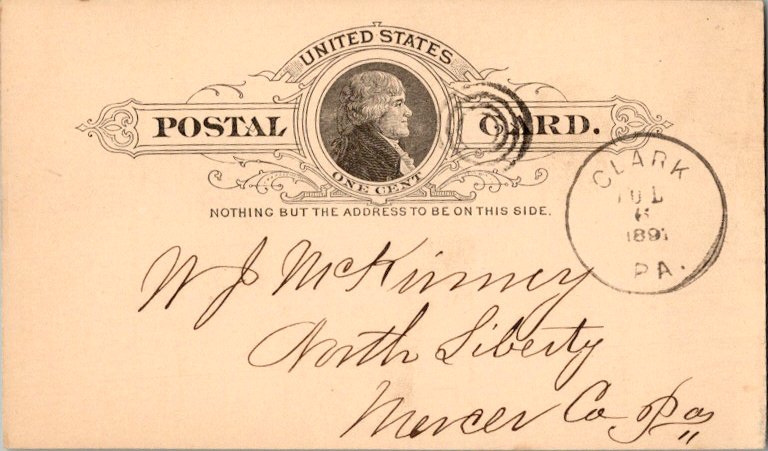 UNITED STATES
POSTAL CARD.
ONE CENT
NOTHING BUT THE ADDRESS TO BE ON THIS SIDE.
CLARK
JUL
6
1891
PA.
W J McKinney
North Liberty
Mercer Co. Pa